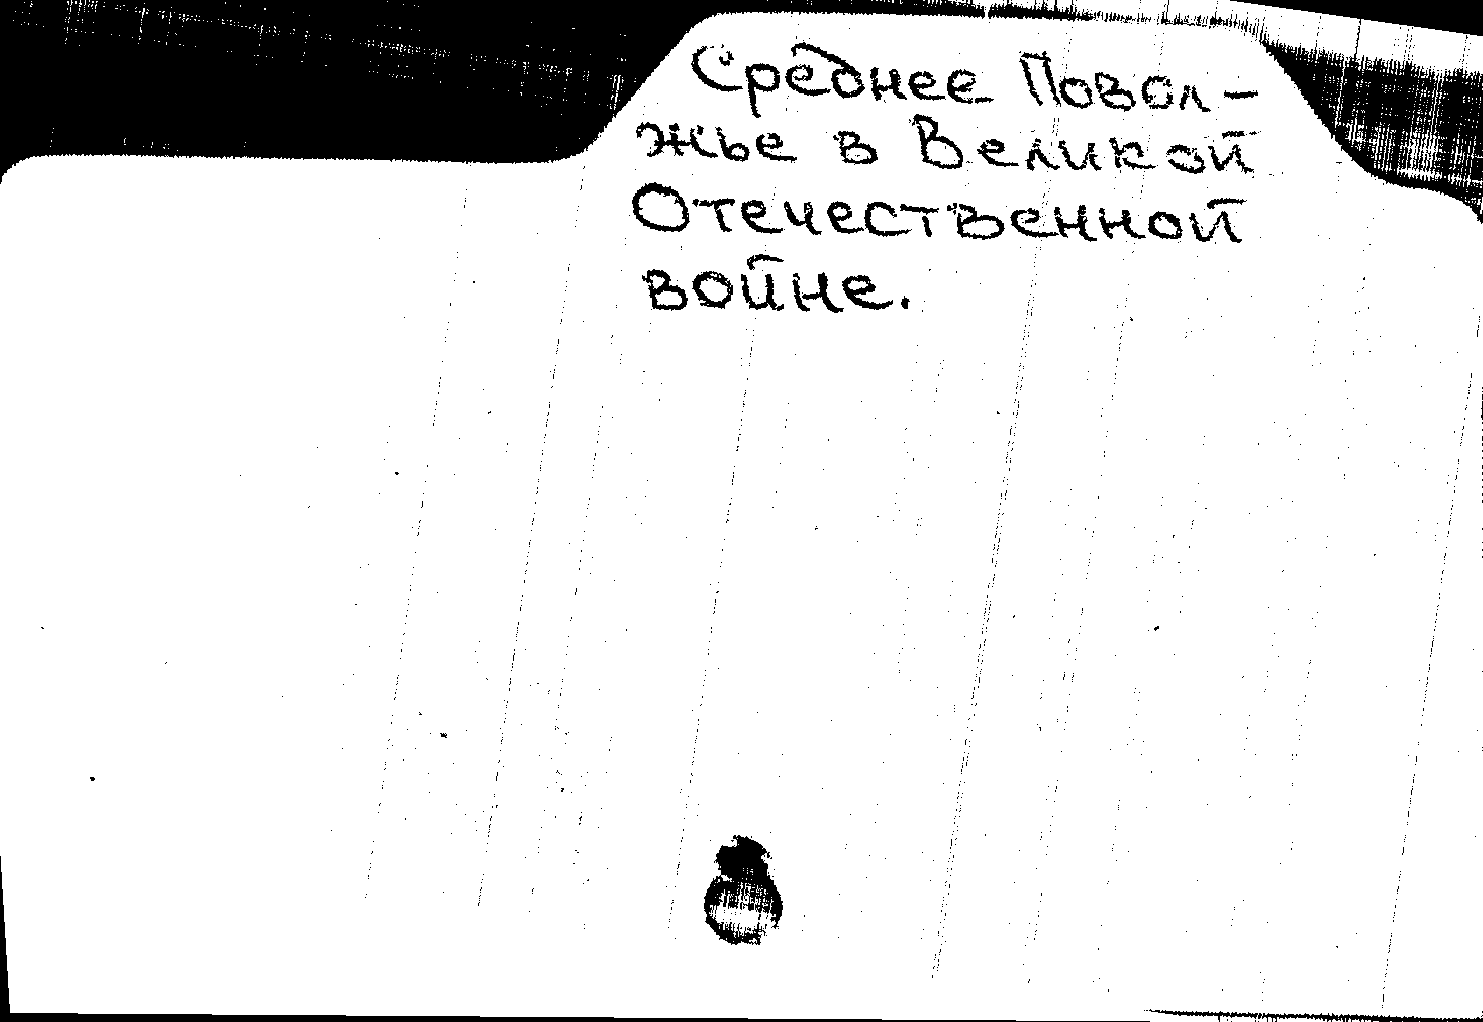 Среднее Повол-
жье в Великой
Отечественной
войне.